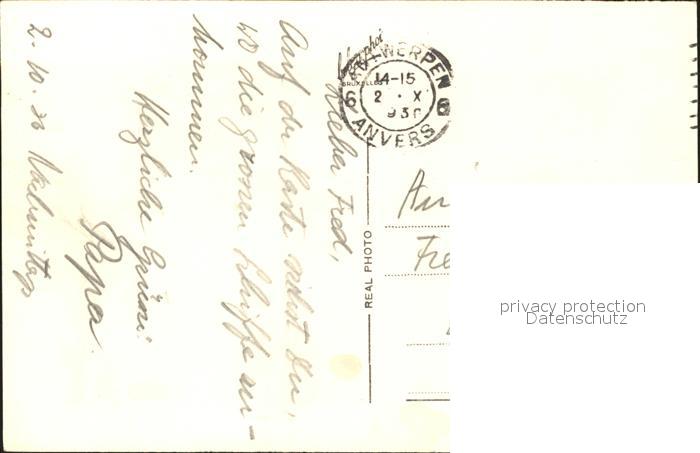 Lieber Fred,
Auf der Karte siehst Du,
wo die grossen Schiffe an-
kommen.
Herzliche Grüsse
Papa.
2. 10. 36 Nachmittags
ANTWERPEN
6 14-15 6
2 · X
ANVERS
BRUXELLES
REAL PHOTO
An
Fre
privacy protection
Datenschutz